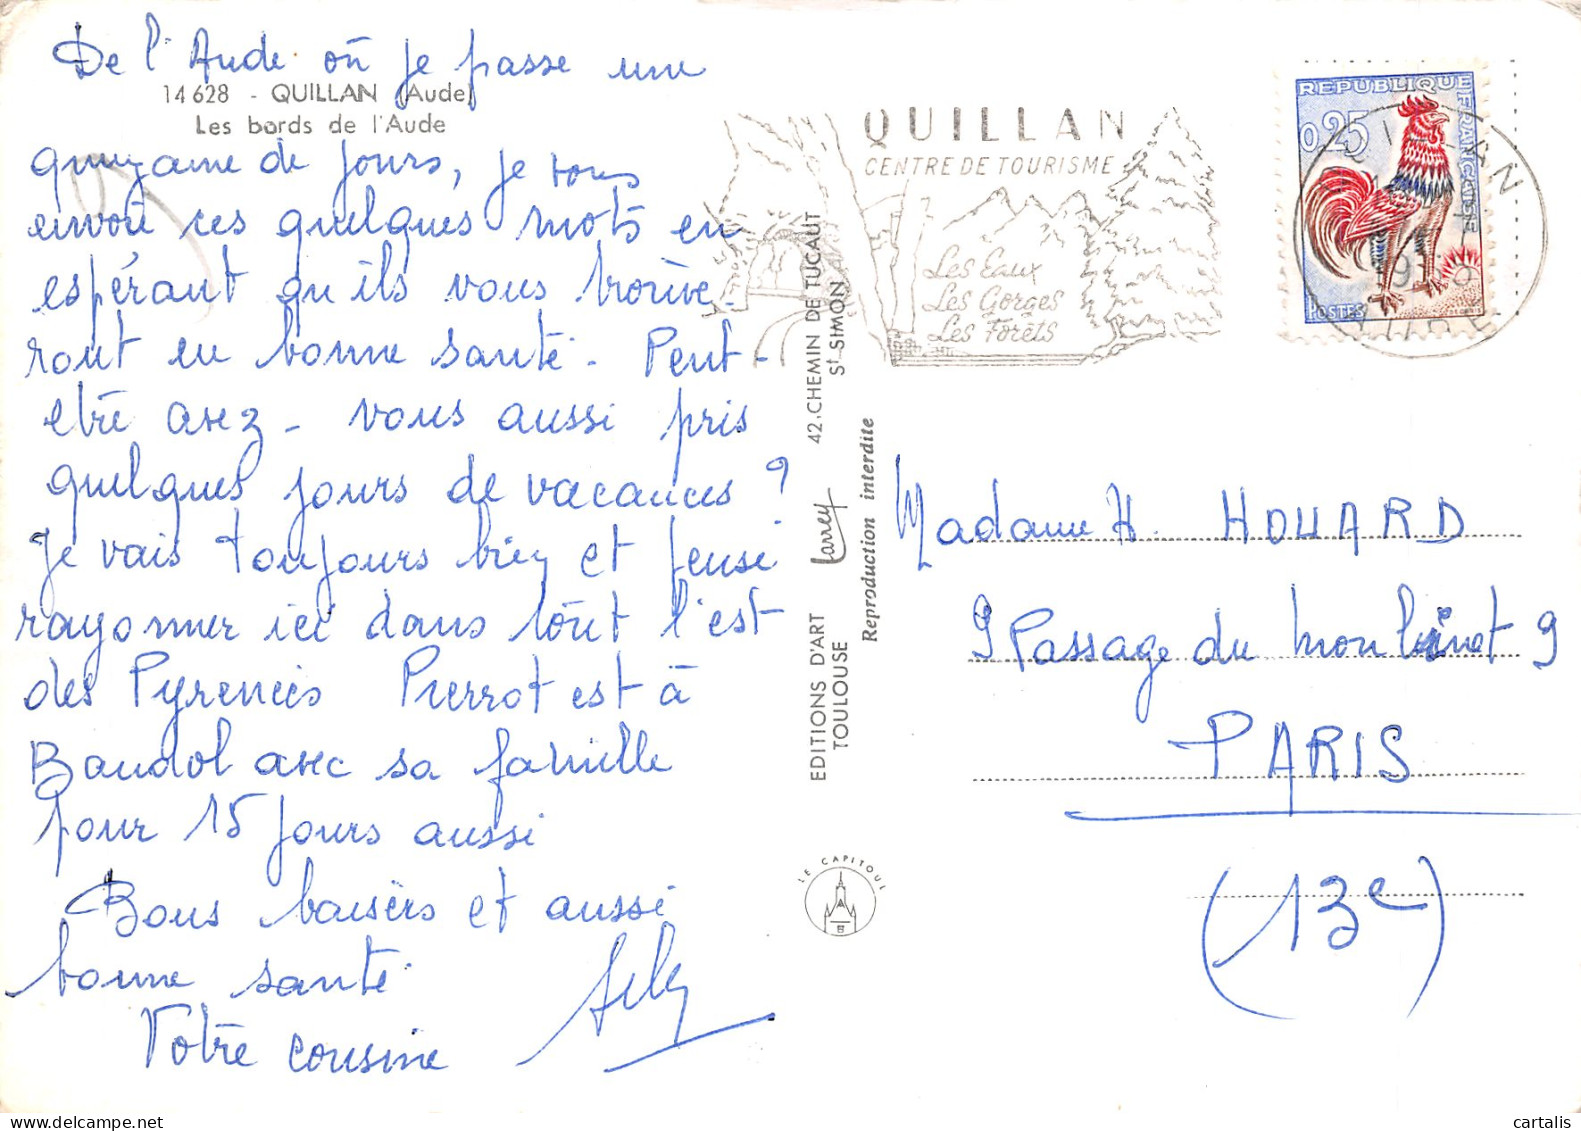 De l'Aude où je passe une
14628 - QUILLAN (Aude)
Les bords de l'Aude
quinzaine de jours, je vous
envoie ces quelques mots en
espérant qu'ils vous trouve-
ront en bonne santé. Peut-
être avez-vous aussi pris
quelques jours de vacances ?
Je vais toujours bien et pense
rayonner ici dans tout l'est
des Pyrénées Pierrot est à
Bandol avec sa famille
pour 15 jours aussi
Bons baisers et aussi
bonne santé
Votre cousine
EDITIONS D'ART Larrey 42, CHEMIN DE TUCAUT
TOULOUSE St-SIMON
Reproduction interdite
LE CAPITOUL
QUILLAN
CENTRE DE TOURISME
Les Eaux
Les Gorges
Les Forêts
REPUBLIQUE FRANÇAISE
0,25
POSTES
QUILLAN
AUDE
Madame H. HOUARD
9 Passage du Moulinet 9
PARIS
(13e)
cartalis
delcampe.net